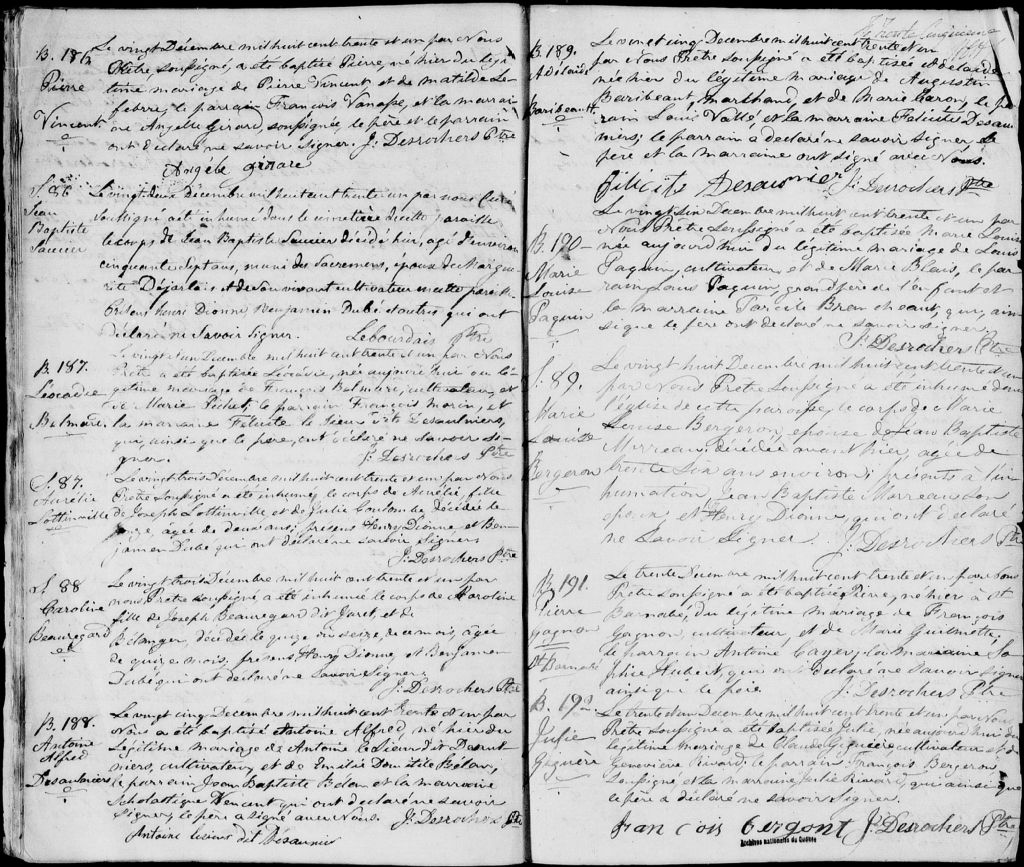 B. 186
Pierre
Vincent
Le vingt Décembre mil huit cent trente et un par Nous
Prêtre soussigné, a été baptisé Pierre, né hier du légi
time mariage de Pierre Vincent et de Matilde Le
febvre, le parrain François Vanasse, et la marrai
ne Angelle Girard, soussignée, le père et le parrain
ont déclaré ne savoir signer. J. Desrochers Ptre
Angèle girare
S. 86
Jean
Baptiste
Saucier
Le vingt deux Decembre mil huit cent trente un par nous Curé
soussigné a été inhumé dans le cimetière de cette paroisse
le corps de Jean Baptiste Saucier décédé hier, agé d'environ
cinquante Sept ans, muni des Sacremens, époux de Margue
rite Dejarlais et de son vivant cultivateur en cette paroisse
Présens Henri Dionne, Benjamen Dubé et autres qui ont
déclaré ne savoir signer. Lebourdais Ptre
B. 187.
Léocadie
Le vingt et un Decembre mil huit cent trente et un par Nous
Prêtre a été baptisée Léocadie, née aujourd'hui du lé
gitime mariage de François cultivateur, et
de Marie Pichet; le parrain François Morin, et
la marraine Felicité Le Sieur dite Desaulniers,
qui, ainsi que le père, ont déclaré ne savoir si
gner. J. Desrochers Ptre
S. 87.
Aurélie
Lottinville
Le vingt trois Décembre mil huit cent trente et un par Nous
Prêtre soussigné a été inhumé, le corps de Aurélie, fille
de Joseph Lottinville et de Julie Coulombe, décédée le
agée de deux ans; présens Henry Dionne et Ben
jamen Dubé qui ont déclaré ne savoir signer.
J. Desrochers Ptre
S. 88
Caroline
Beauregard
Le vingt trois Décembre mil huit cent trente et un par
nous Prêtre soussigné, a été inhumé le corps de Caroline
fille de Joseph Beauregard dit Jaret, et de
Bélanger, décédée le quize ou seize, de ce mois, agée
de quize mois, présens Henry Dionne, et Benjamen
Dubé qui ont déclaré ne savoir signer.
J. Desrochers Ptre
B. 188.
Antoine
Alfred
Desaulniers
Le vingt cinq Decembre mil huit cent trente et un par
Nous a été baptisé Antoine Alfred, né hier du
Légitime mariage de Antoine LeSieur dit Desaul
niers, cultivateur, et de Emélie Domitile Bélan,
le parrain Jean Baptiste Bélan et la marraine
Scholastique Vencent qui ont déclaré ne savoir
signer, le père a signé avec Nous. J. Desrochers Ptre
Antoine lesieur dit Désaunié
B. 189.
Adélaide
Baribeault
Le vingt cinq Decembre mil huit cent trente et un
par Nous Prêtre soussigné a été baptisée Adelaide
née hier du légitime mariage de Augustin
Baribeant, Marchand, et de Marie Caron, le par
rain Louis Vallé, et la marraine Felicité Desaul
niers, le parrain a déclaré ne savoir signer, le
père et la marraine ont signé avec Nous.
félicité Desaunier J. Desrochers Ptre
B. 190
Marie
Louise
Paquin
Le vingt six Decembre mil huit cent trente et un par
Nous Prêtre soussigné a été baptisée Marie Louise
née aujourd'hui du légitime mariage de Louis
Paquin, cultivateur, et de Marie Blais, le par
rain Louis Paquin, grand père de l'enfant et
la marraine Tarcile Brancheaut, qui, ain
si que le père ont déclaré ne savoir signer.
J. Desrochers Ptre
S. 89.
Marie
Louise
Bergeron
Le vingt huit Decembre mil huit cent trente et un
par Nous Prêtre soussigné a été inhumé dans
l'église de cette paroisse, le corps de Marie
Louise Bergeron, épouse de Jean Baptiste
Morreau, décédée avant hier, agée de
trente six ans environ; présents à l'in
humation, Jean Baptiste Morreau son
époux, et Henry Dionne, qui ont déclaré
ne savoir signer. J. Desrochers Ptre
B. 191.
Pierre
Gagnon
St Barnabé
Le trente Decembre mil huit cent trente et un par Nous
Prêtre soussigné a été baptisé Pierre, né hier à St
Barnabé, du légitime mariage de François
Gagnon, cultivateur, et de Marie Guilmette;
le parrain Antoine la marraine So
phie Hubert, qui ont déclaré ne savoir signer
ainsi que le père. J. Desrochers Ptre
B. 192
Julie
Le trente et un Decembre mil huit cent trente et un par Nous
Prêtre soussigné a été baptisée Julie, née aujourd'hui du
légitime mariage de Claude cultivateur et de
Geneviève Rivard; le parrain François Bergeron
soussigné et la marraine Julie Rivard, qui ainsi que
le père a déclaré ne savoir signer.
fran cois bergont J. Desrochers Ptre
Archives nationales du Québec